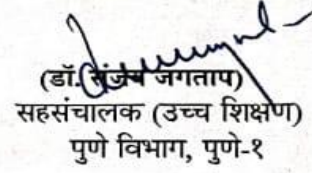 (डॉ. संजय जगताप)
सहसंचालक (उच्च शिक्षण)
पुणे विभाग, पुणे-१